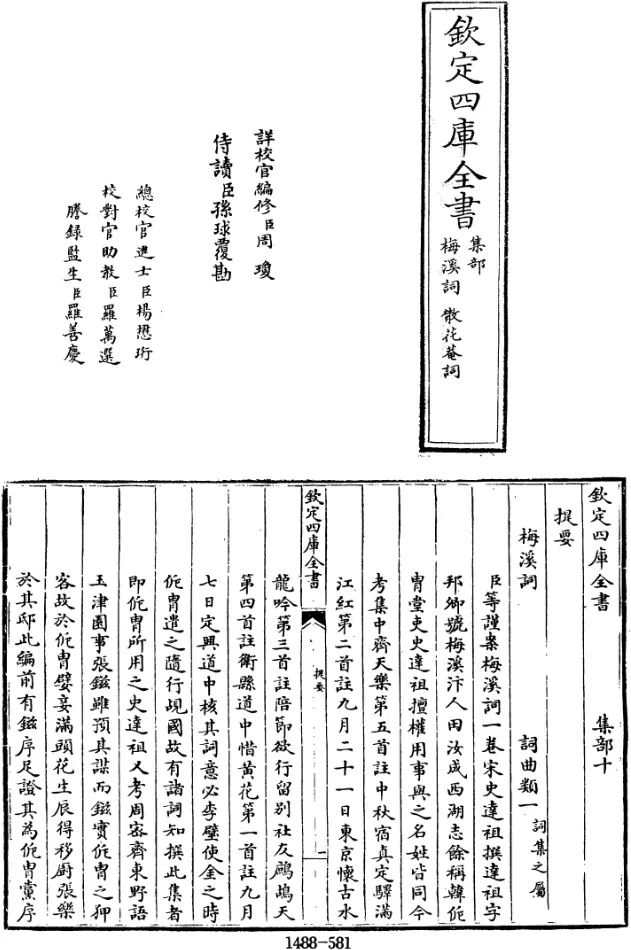 欽定四庫全書
集部
梅溪詞 散花菴詞
詳校官編修臣周瓊
侍讀臣孫球覆勘
總校官進士臣楊懋珩
校對官助教臣羅萬選
謄錄監生臣羅善慶
欽定四庫全書 集部十
提要
梅溪詞 詞曲類一 詞集之屬
臣等謹案梅溪詞一卷宋史達祖撰達祖字
邦卿號梅溪汴人田汝成西湖志餘稱韓侂
胄堂吏史達祖擅權用事與之名姓皆同今
考集中齊天樂第五首註中秋宿真定驛滿
江紅第二首註九月二十一日東京懷古水
欽定四庫全書 提要 一
龍吟第三首註陪節欲行留別社友鷓鴣天
第四首註衛縣道中惜黄花第一首註九月
七日定興道中核其詞意必李壁使金之時
侂胄遣之隨行覘國故有諸詞知撰此集者
即侂胄所用之史達祖又考周密齊東野語
玉津園事張鎡雖預其謀而鎡實侂胄之狎
客故於侂胄嬖妾滿頭花生辰得移厨張樂
於其邸此編前有鎡序足證其為侂胄黨序
1488-581